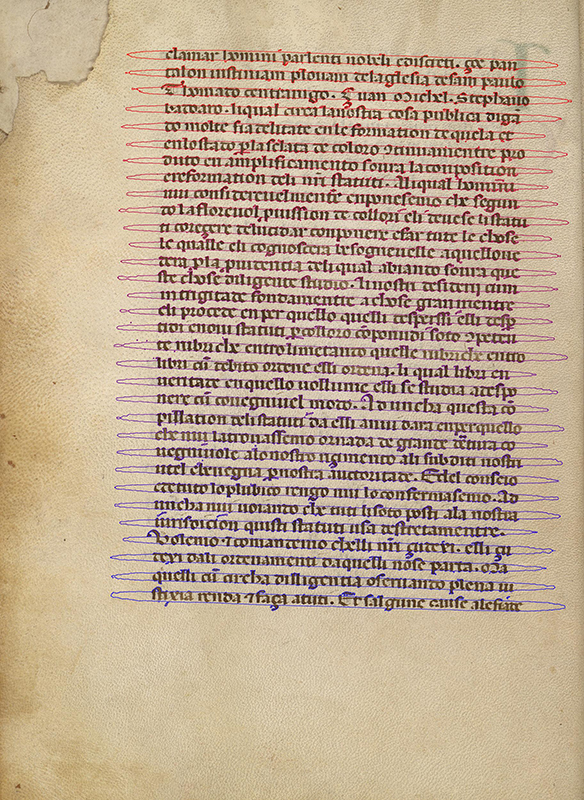 clamar homini parlenti nobeli ediscreti. çoe pan
talon iustinian plouam delaglesia desam paulo
Thomado centranigo. Çuan Michel. Stephano
badoaro. liqual circa lanostra cosa publica digã
do molte fiadelitate enle formation dequela et
enlostato p̱ la selata de coloro ꝯtinuamentre pro
duto en amplificamento soura la conposition
ereformation deli nr̃i statuti. Aliqual homini
nui considereuelmentre enponesemo che segun
do lafloreuol p̱uission de collori eli deuese li statu
ti coregere delucidar conponere efar tute le chose
le qualle eli cognoscera le sogneuelle aquellone
dera p̱ la p̱uidentia deli qual abiando soura que
ste chose diligente studio. li nostri desiderij cum
intrigitate fondamentre a chose gran mentre
eli procede en per quello quelli desperssi elli desp̱
tidi enoui statuti p̱ colloro cõponudi soto ꝯpeten
te rubriche entro limetando quelle rubriche entro
libri cũ debito ordene elli ordena. li qual libri en
ueritate en quello vollume elli se studia adespo
nere cũ coueniuel modo. Ad uncha questa cõ
pillation deli statuti da elli anui dara enper quello
che nui la trouassemo ornada de grande dretura co
uegniuole alo nostro rigimento ali subditi nostri
utel che uegna p̱ nostra auctoritate. Edel conseio
etetuto lo plubico rengo nui lo confermasemo. Ad
uncha nui uoiando che tuti li soto posti ala nostra
iurisdicion quisti statuti usa destretamentre.
Volemo ⁊ comandemo chelli nr̃i çudexi. elli çu
dexi dali ordenamenti da quelli nose parta. Ma
quelli cũ circha dilligentia oseruando plena iu
stixia renda ⁊ faça atuti. Et sal gune cause alefiate